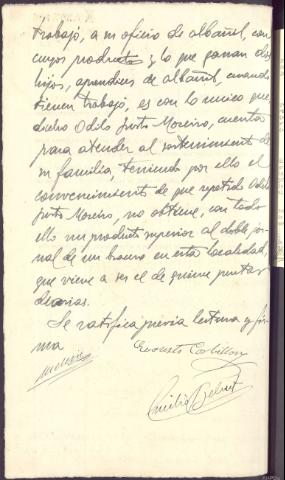 trabajo, a su oficio de albañil, con
cuyos productos y lo que ganan dos
hijos, aprendices de albañil, cuando
tienen trabajo, es con lo unico que
dicho Odilo Justo Moreiro, cuenta
para atender al sostenimiento de
su familia, teniendo por ello el
convencimiento de que repetido Odilo
Justo Moreiro, no obtiene, con todo
ello un producto superior al doble jor-
nal de un bracero en esta localidad,
que viene a ser el de quince pesetas
diarias.
Se ratifica previa lectura y fir-
ma